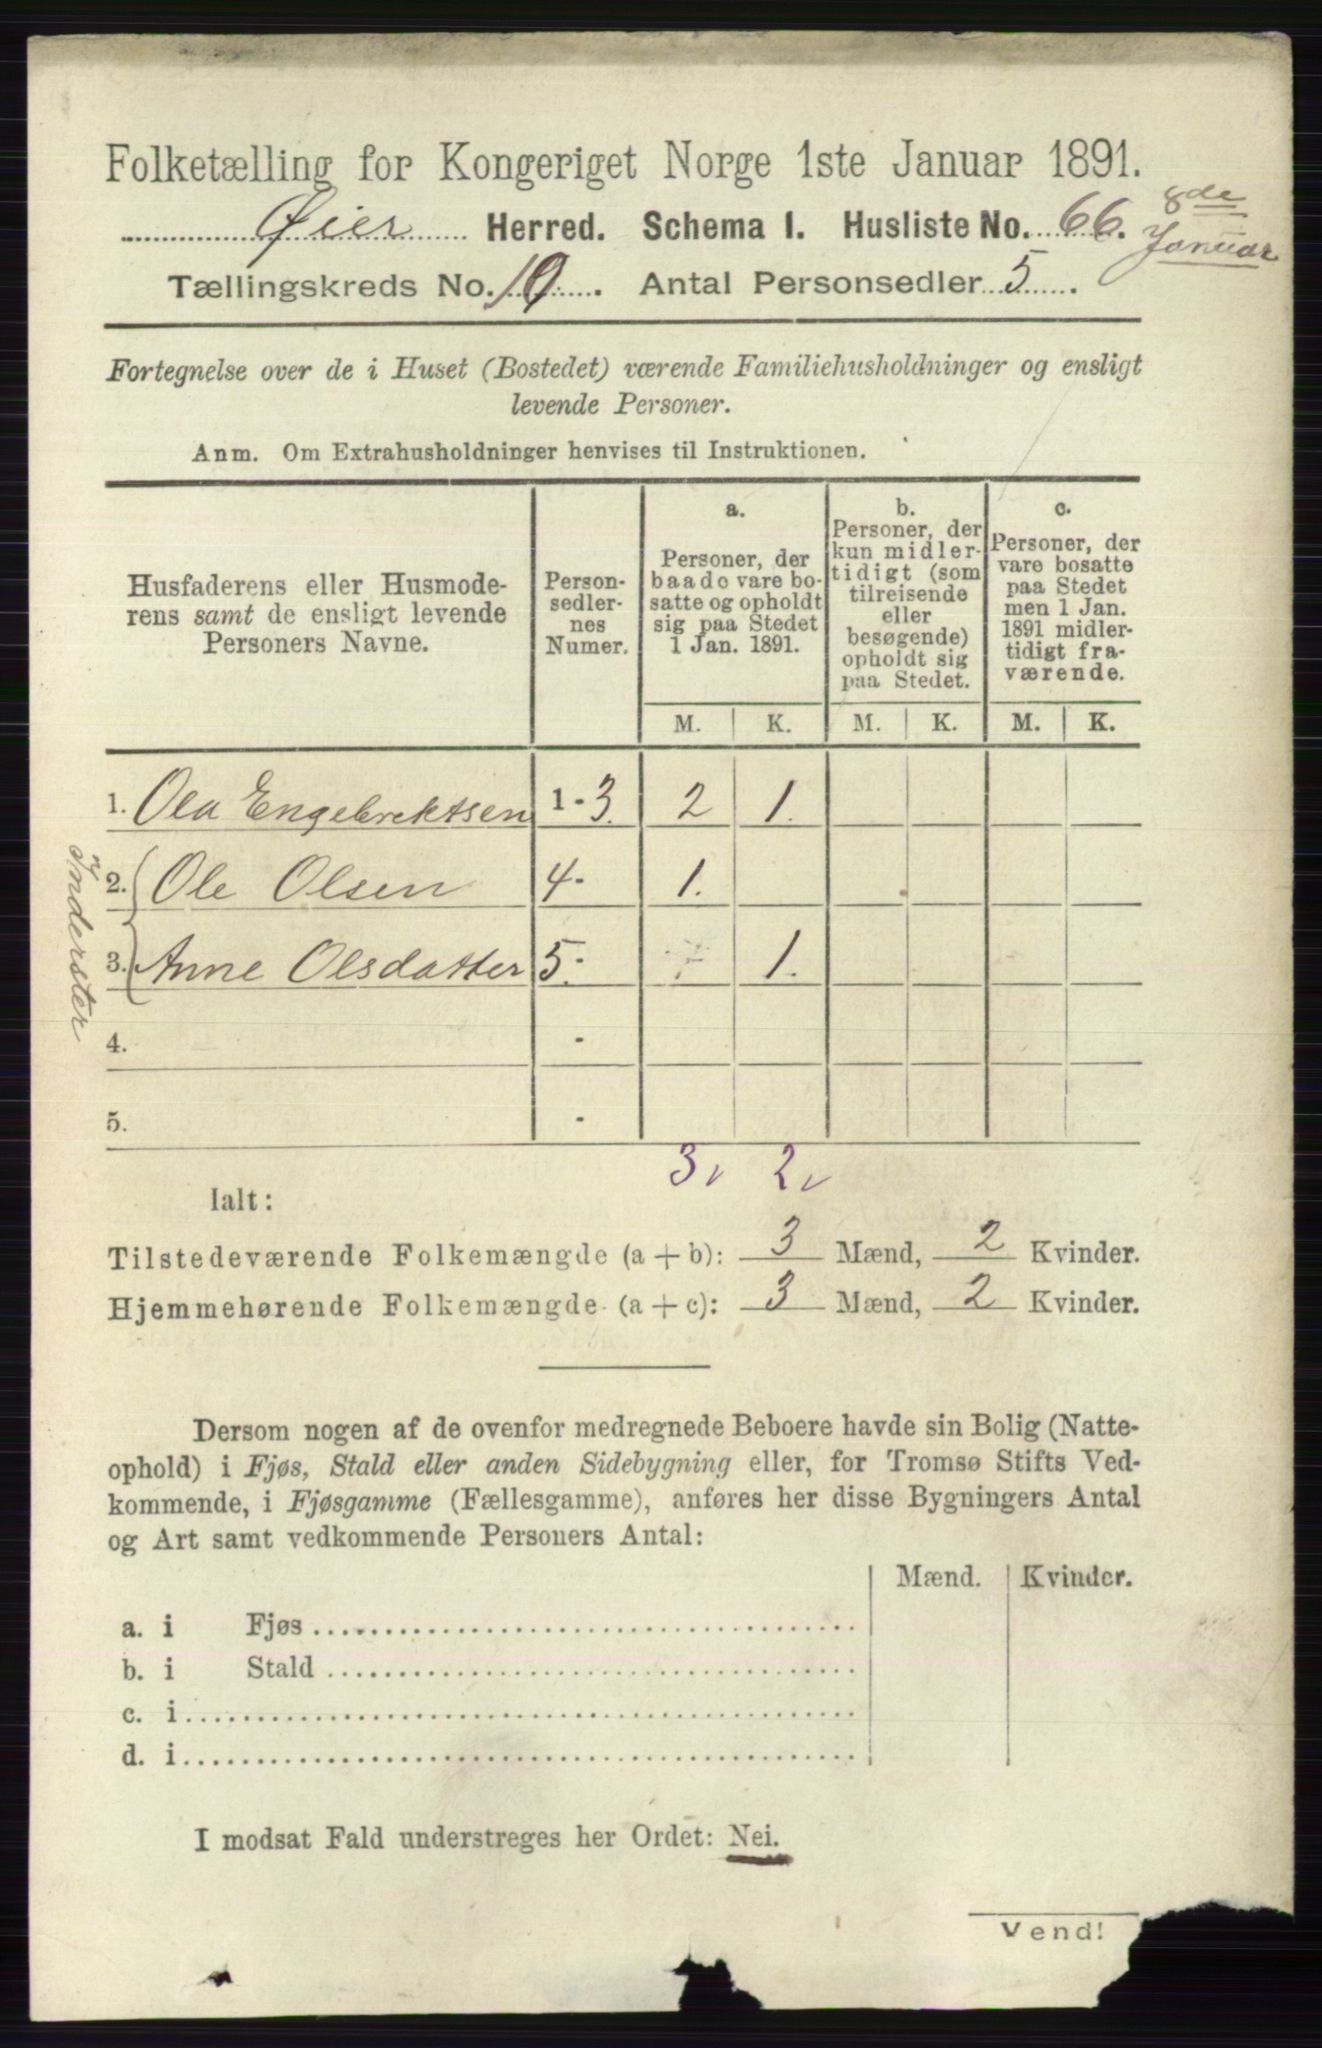 Folketælling for Kongeriget Norge 1ste Januar 1891.
8de
Januar
Øier Herred. Schema I. Husliste No. 66.
Tællingskreds No. 10. Antal Personsedler 5.
Fortegnelse over de i Huset (Bostedet) værende Familiehusholdninger og ensligt
levende Personer.
Anm. Om Extrahusholdninger henvises til Instruktionen.
Husfaderens eller Husmode-
rens samt de ensligt levende
Personers Navne.
Person-
sedler-
nes
Numer.
a.
Personer, der
baade vare bo-
satte og opholdt
sig paa Stedet
1 Jan. 1891.
b.
Personer, der
kun midler-
tidigt (som
tilreisende
eller
besøgende)
opholdt sig
paa Stedet.
c.
Personer, der
vare bosatte
paa Stedet
men 1 Jan.
1891 midler-
tidigt fra-
værende.
M. K. M. K. M. K.
1. Ola Engebrektsen 1-3. 2 1.
2. Ole Olsen 4- 1.
3. Anne Olsdatter 5- 1.
Inderster
4. -
5. -
3 2
Ialt:
Tilstedeværende Folkemængde (a + b): 3 Mænd, 2 Kvinder.
Hjemmehørende Folkemængde (a + c): 3 Mænd, 2 Kvinder.
Dersom nogen af de ovenfor medregnede Beboere havde sin Bolig (Natte-
ophold) i Fjøs, Stald eller anden Sidebygning eller, for Tromsø Stifts Ved-
kommende, i Fjøsgamme (Fællesgamme), anføres her disse Bygningers Antal
og Art samt vedkommende Personers Antal:
Mænd. Kvinder.
a. i Fjøs
b. i Stald
c. i
d. i
I modsat Fald understreges her Ordet: Nei.
Vend!